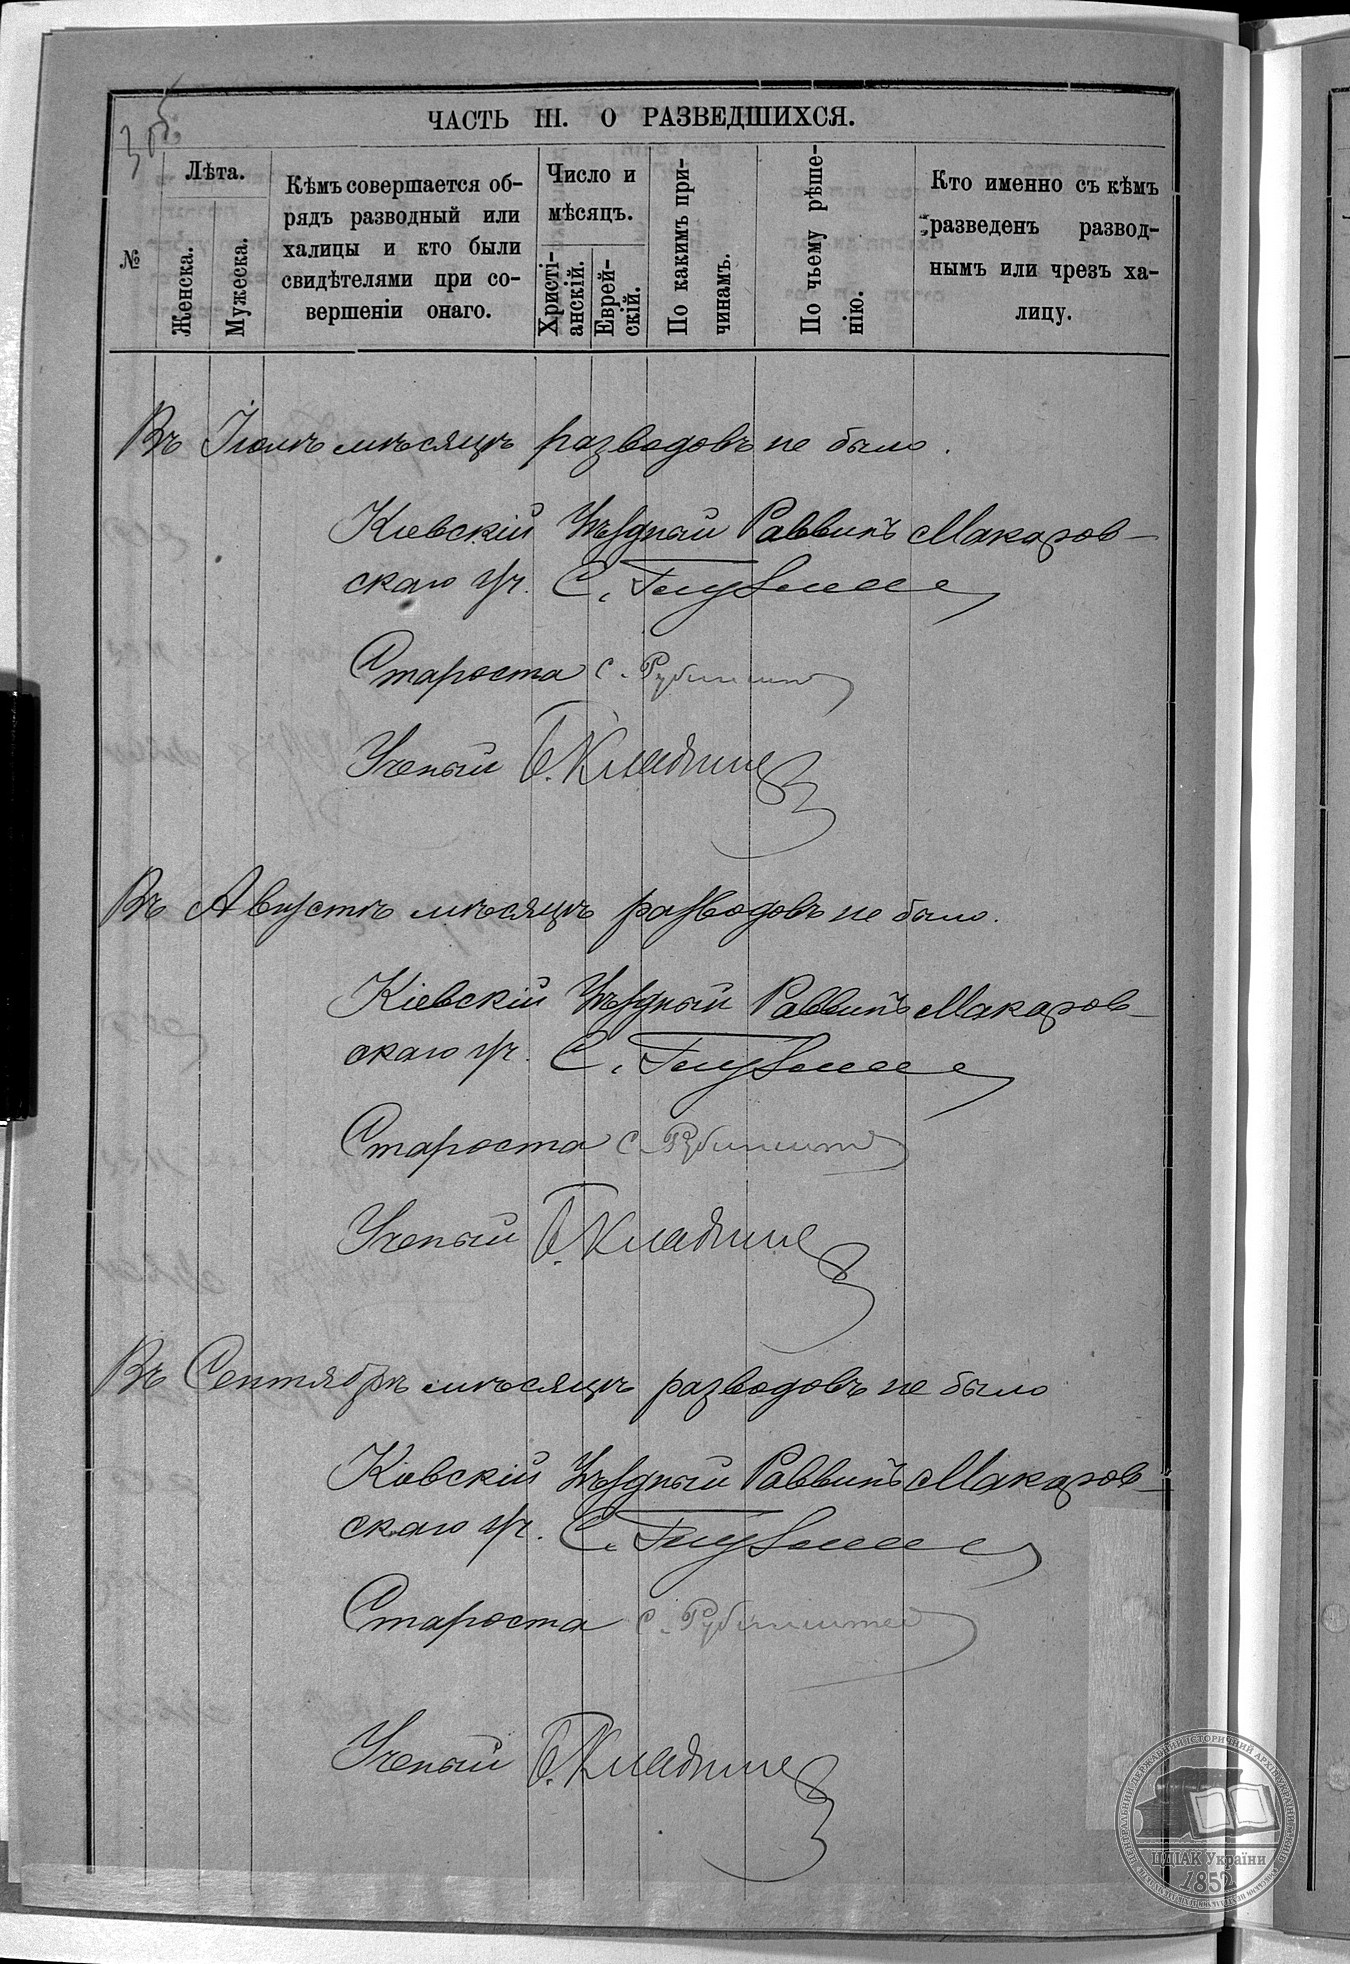 305
ЧАСТЬ III. О РАЗВЕДШИХСЯ.
№
Лѣта.
Женска.
Мужеска.
Кѣмъ совершается об-
рядъ разводный или
халицы и кто были
свидѣтелями при со-
вершеніи онаго.
Число и
мѣсяцъ.
Христі-
анскій.
Еврей-
скій.
По какимъ при-
чинамъ.
По чьему рѣше-
нію.
Кто именно съ кѣмъ
разведенъ развод-
нымъ или чрезъ ха-
лицу.
Въ Іюлѣ мѣсяцѣ разводовъ не было.
Кіевскій Уѣздный Раввинъ Макаров-
скаго уч. С.
Староста С.
Ученый Б.
Въ Августѣ мѣсяцѣ разводовъ не было.
Кіевскій Уѣздный Раввинъ Макаров-
скаго уч. С.
Староста С.
Ученый Б.
Въ Сентябрѣ мѣсяцѣ разводовъ не было
Кіевскій Уѣздный Раввинъ Макаров-
скаго уч. С.
Староста С.
Ученый Б.
ЦДІАК України
1852